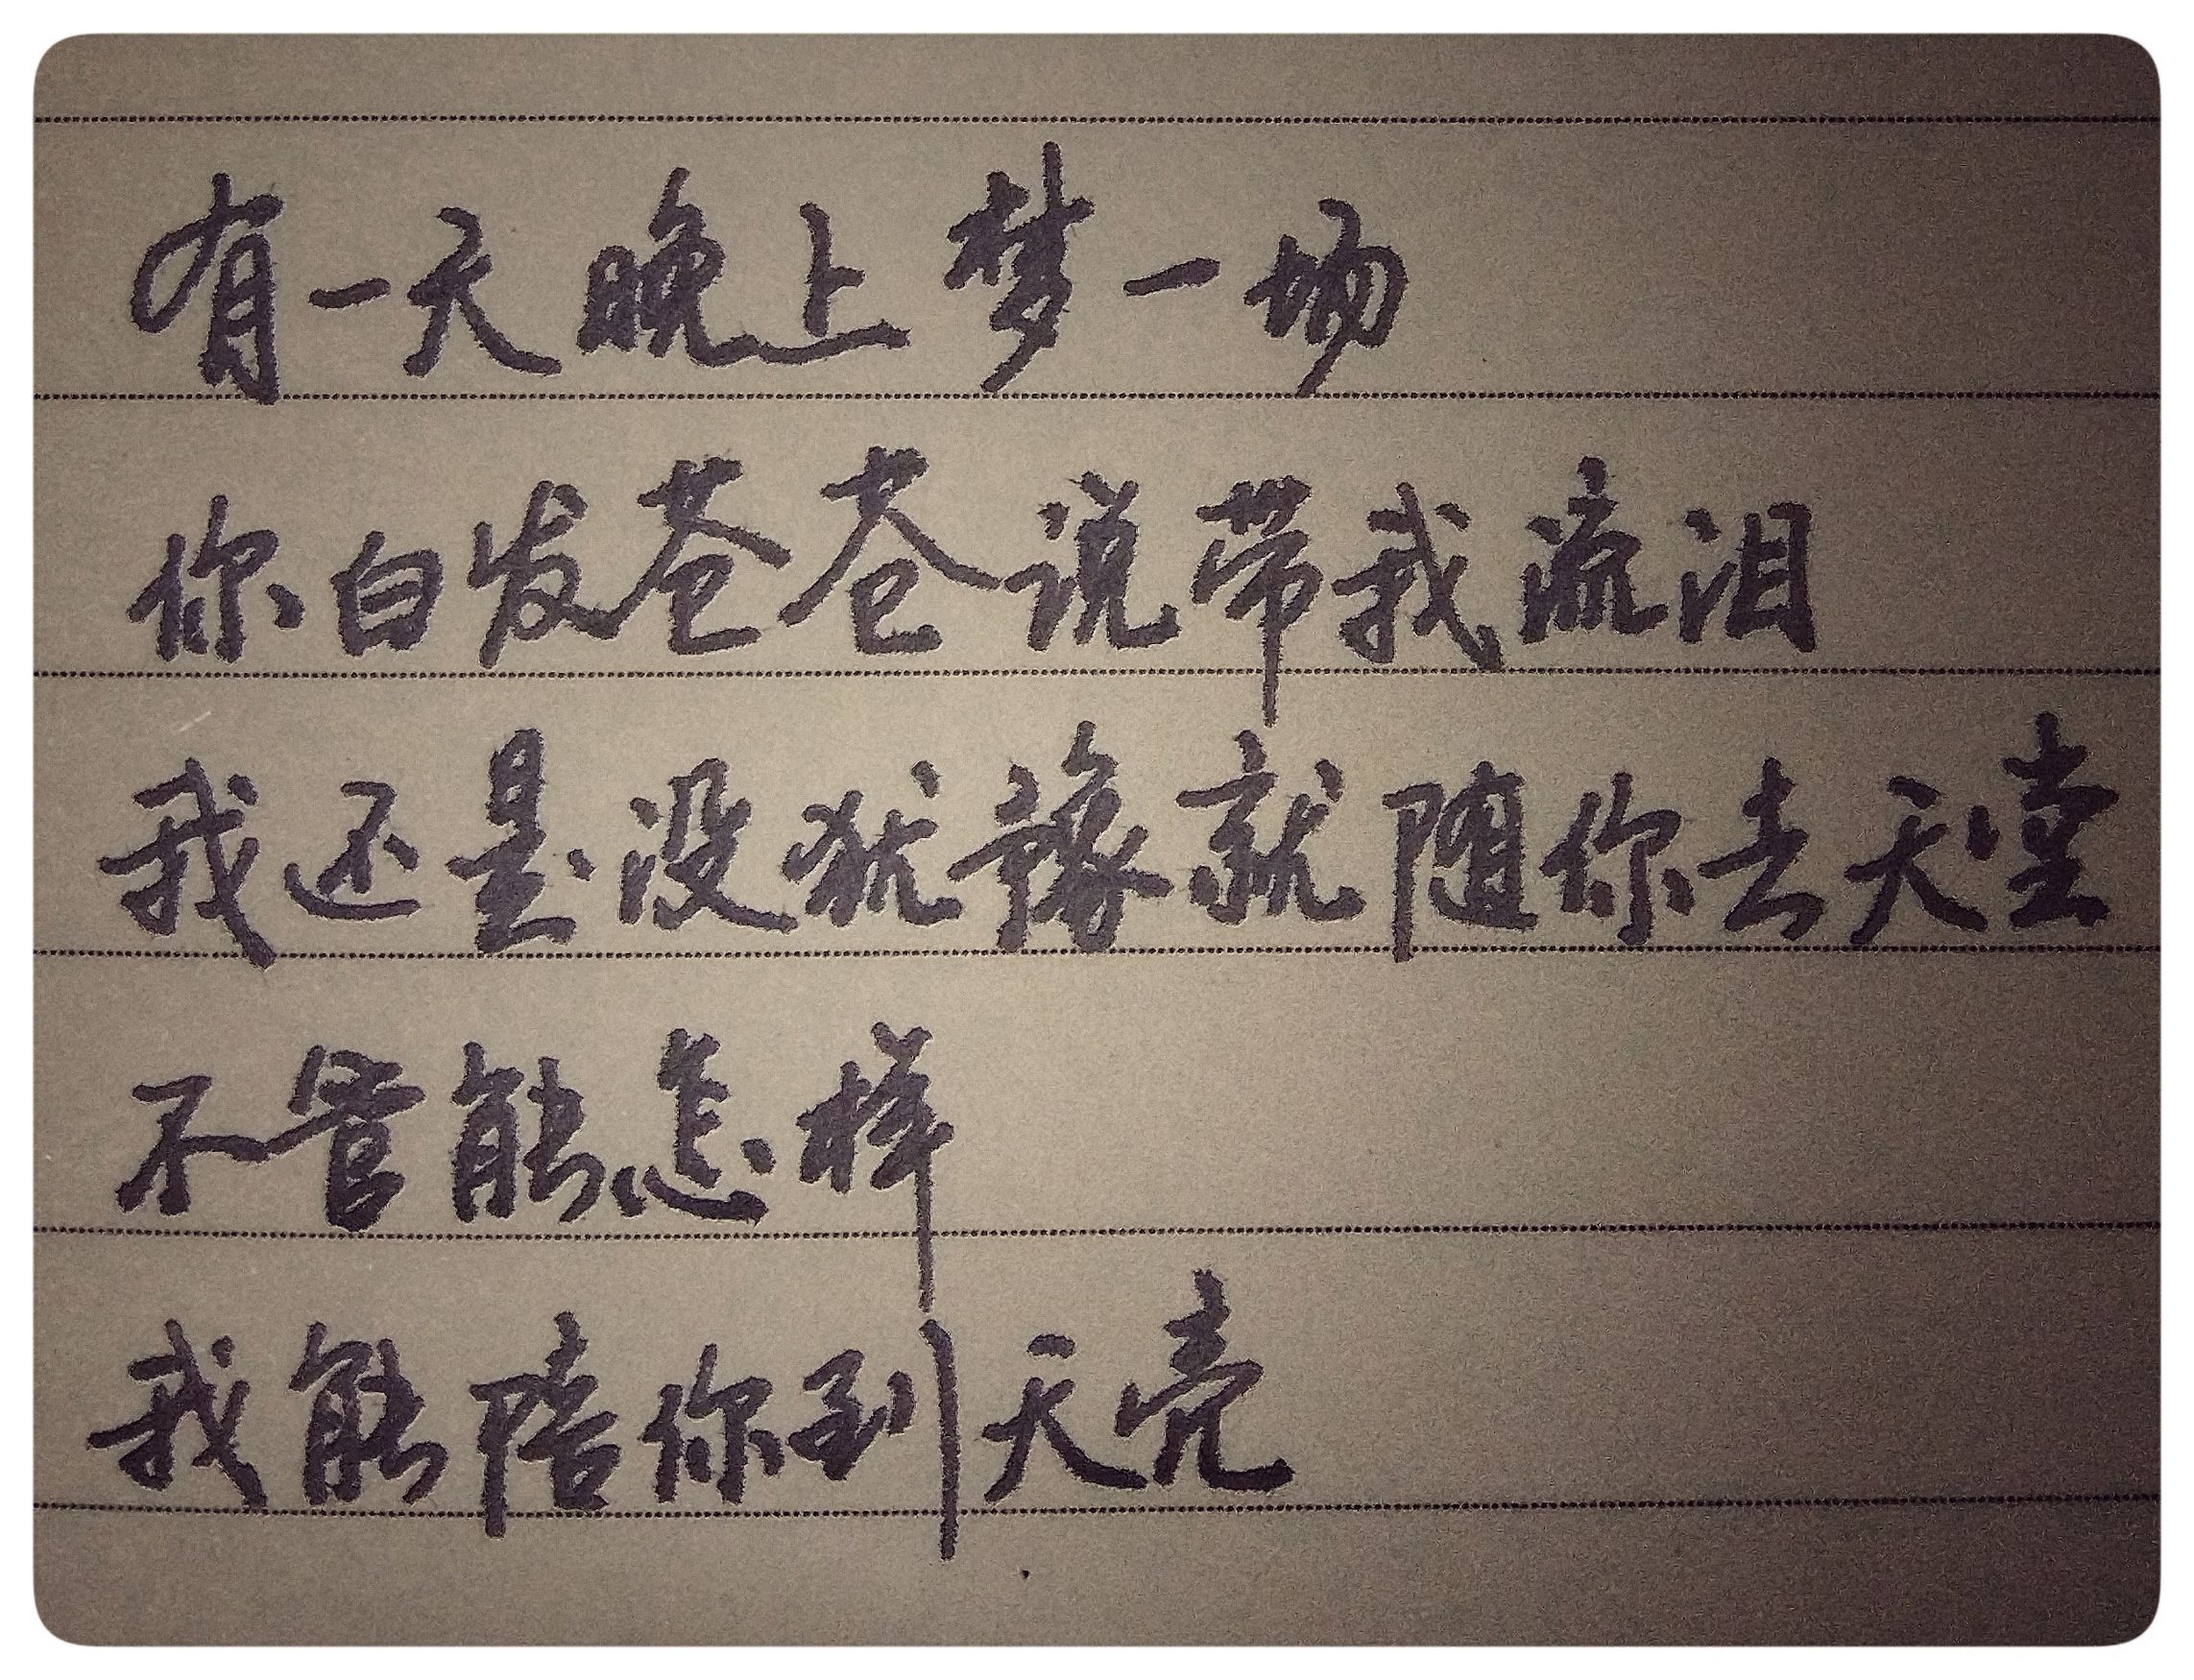 有一天晚上梦一场
你白发苍苍说带我流泪
我还是没犹豫就随你去天堂
不管能怎样
我能陪你到天亮